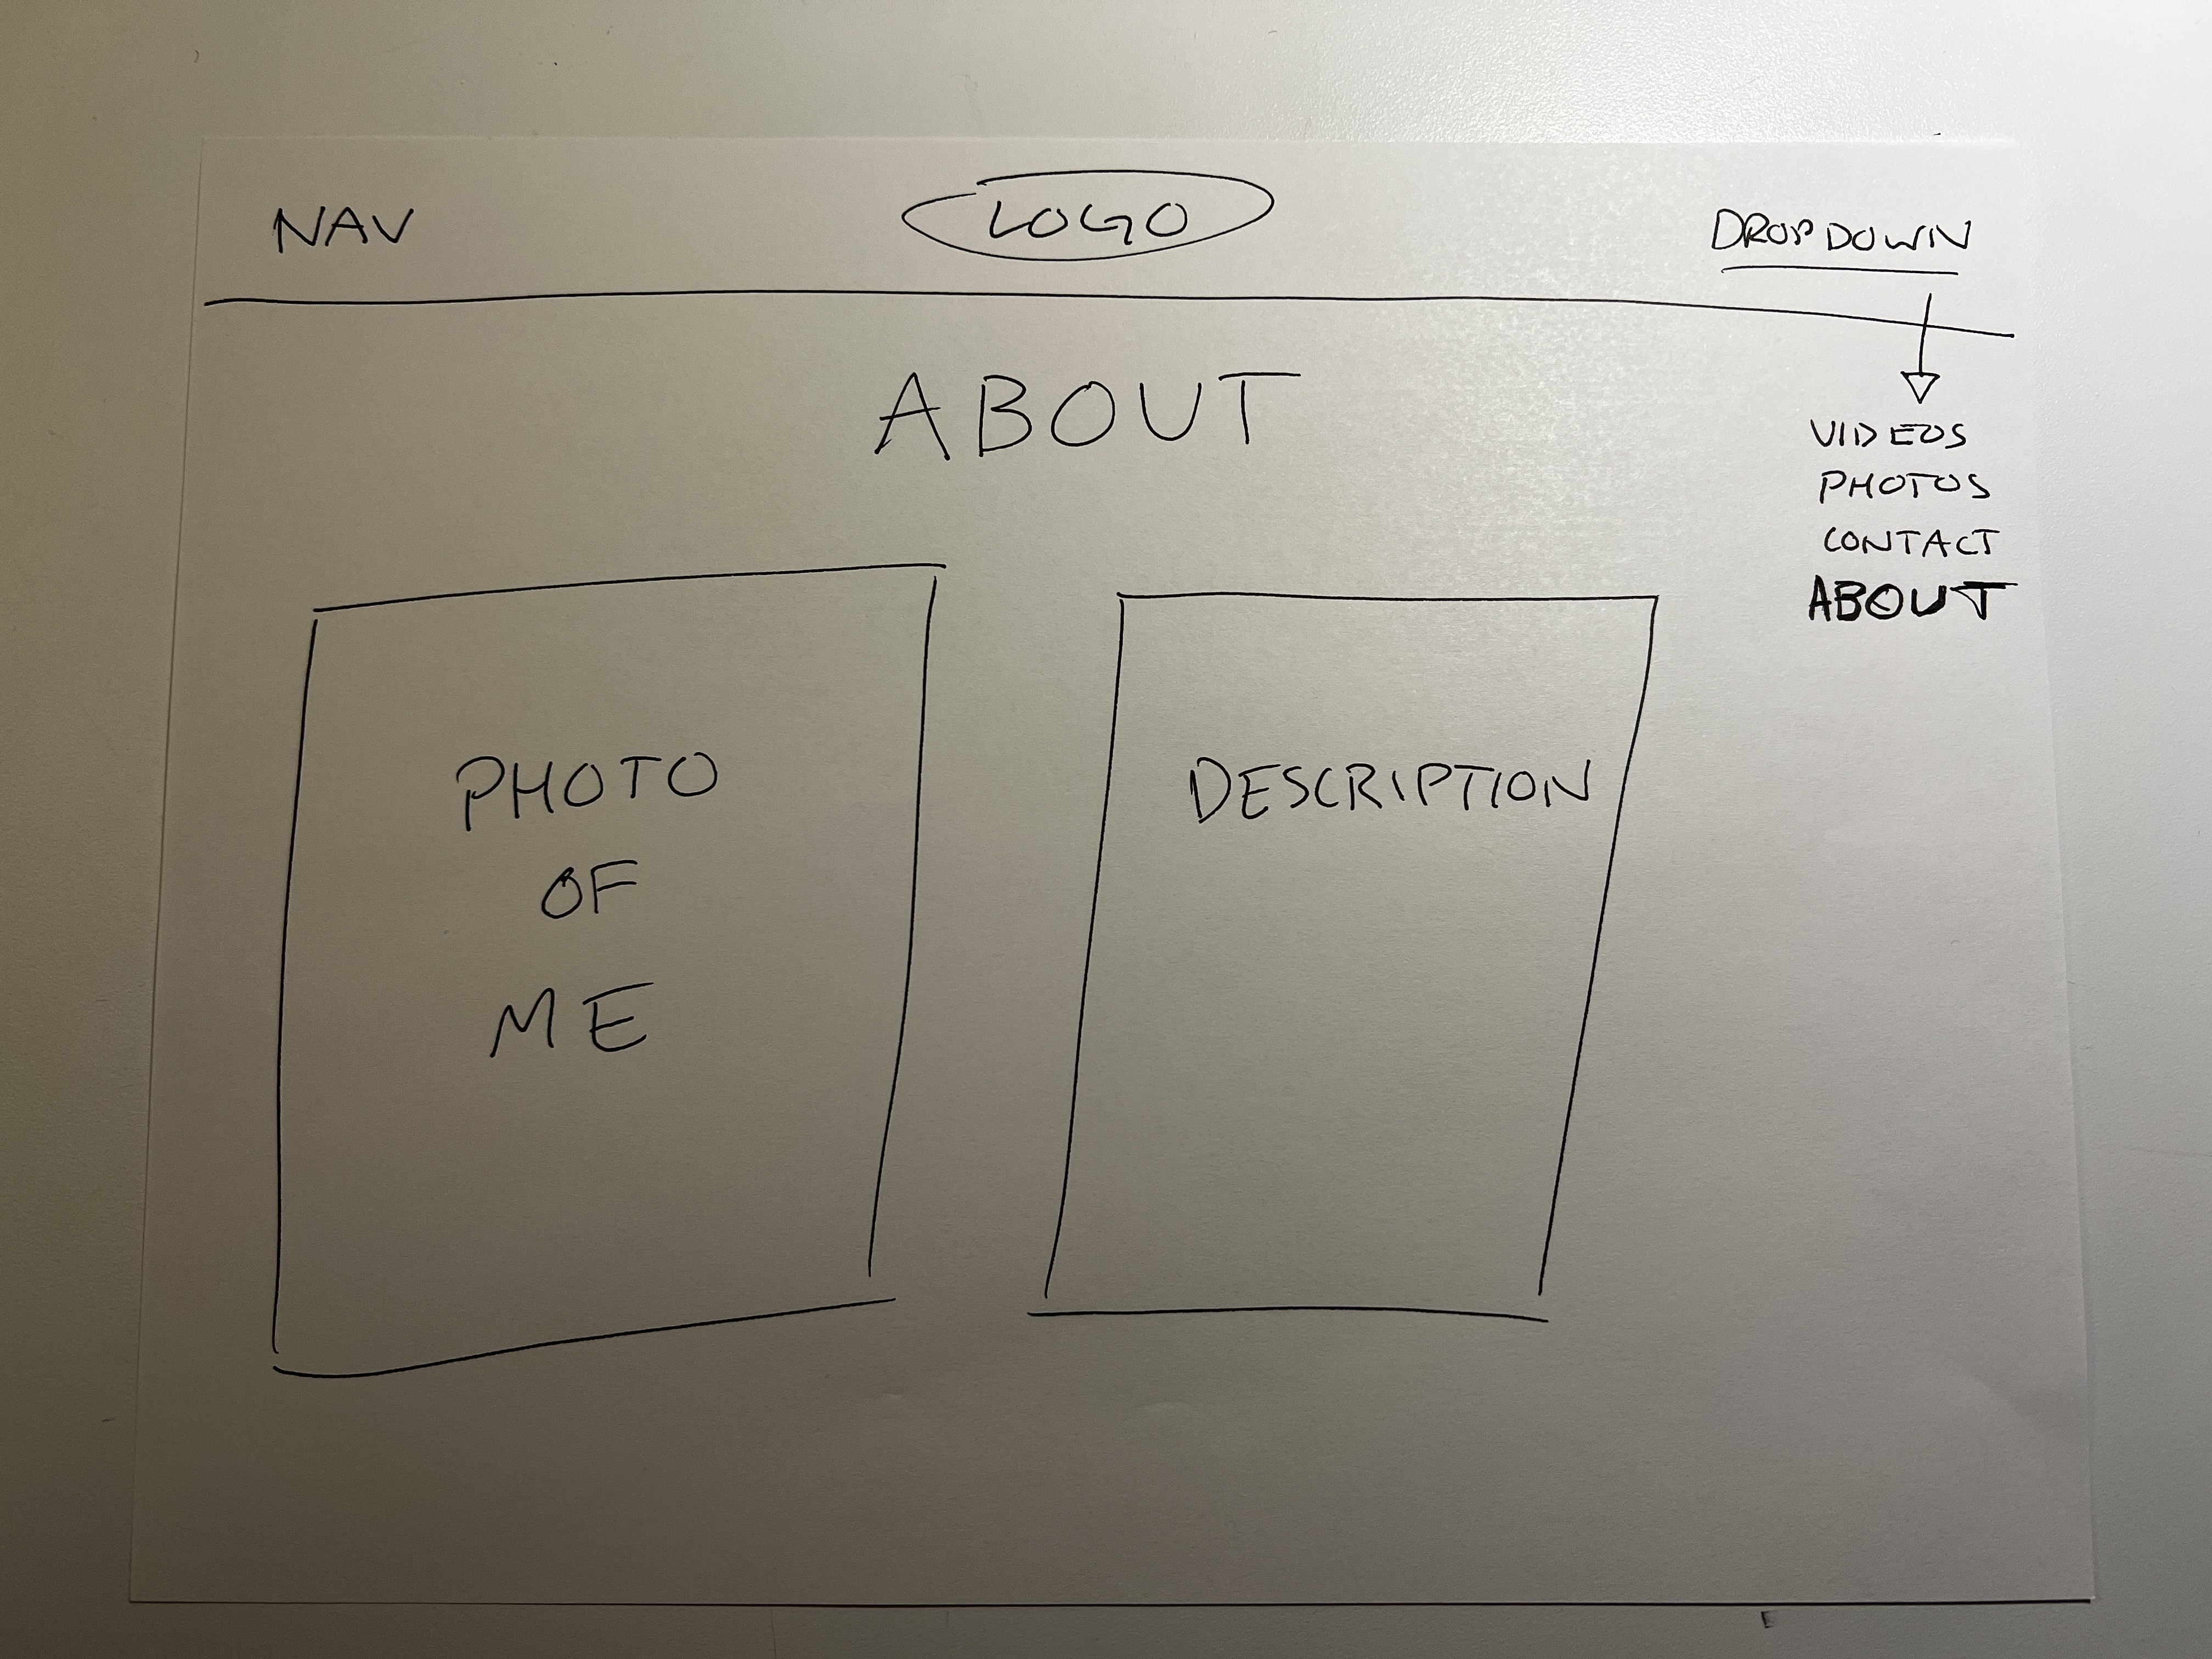 NAV LOGO DROPDOWN
ABOUT
VIDEOS
PHOTOS
CONTACT
ABOUT
PHOTO
OF
ME
DESCRIPTION